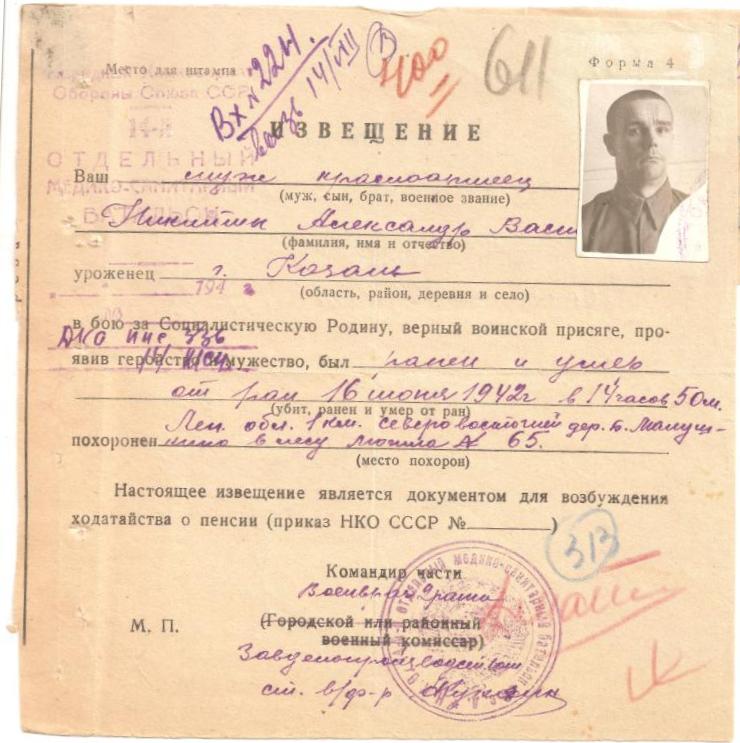 Вх № 224.
14/VIII
1100
611
Место для штампа
Форма 4
Обороны Союза ССР
14-й
ОТДЕЛЬНЫЙ
МЕДИКО-САНИТАРНЫЙ
ИЗВЕЩЕНИЕ
Ваш муж красноармеец
(муж, сын, брат, военное звание)
Александр Васи
(фамилия, имя и отчество)
уроженец г. Казань
194 г
(область, район, деревня и село)
в бою за Социалистическую Родину, верный воинской присяге, про-
явив геройство и мужество, был ранен и умер
от ран 16 июня 1942г в 14 часов 50 м.
(убит, ранен и умер от ран)
Лен. обл. 1 км. северо восточней дер. Б. Малуш-
похоронен кино в лесу могила № 65.
(место похорон)
Настоящее извещение является документом для возбуждения
ходатайства о пенсии (приказ НКО СССР № )
313
Командир части
Военврач 2 ранга
М. П.
(Городской или районный
военный комиссар)
Завделопроизводством
ст. в/ф-р